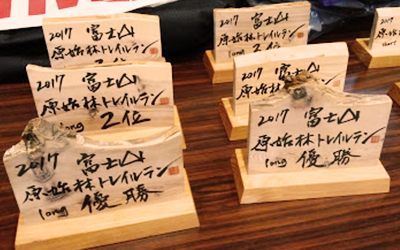 2017 富士山
原始林トレイルラン
2位
2017 富士山
原始林トレイルラン
long 2位
2017 富士山
原始林トレイルラン
long 優勝
2017 富士山
原始林トレイルラン
long 2位
2017 富士山
原始林トレイルラン
2017 富士山
原始林トレイルラン
long 優勝